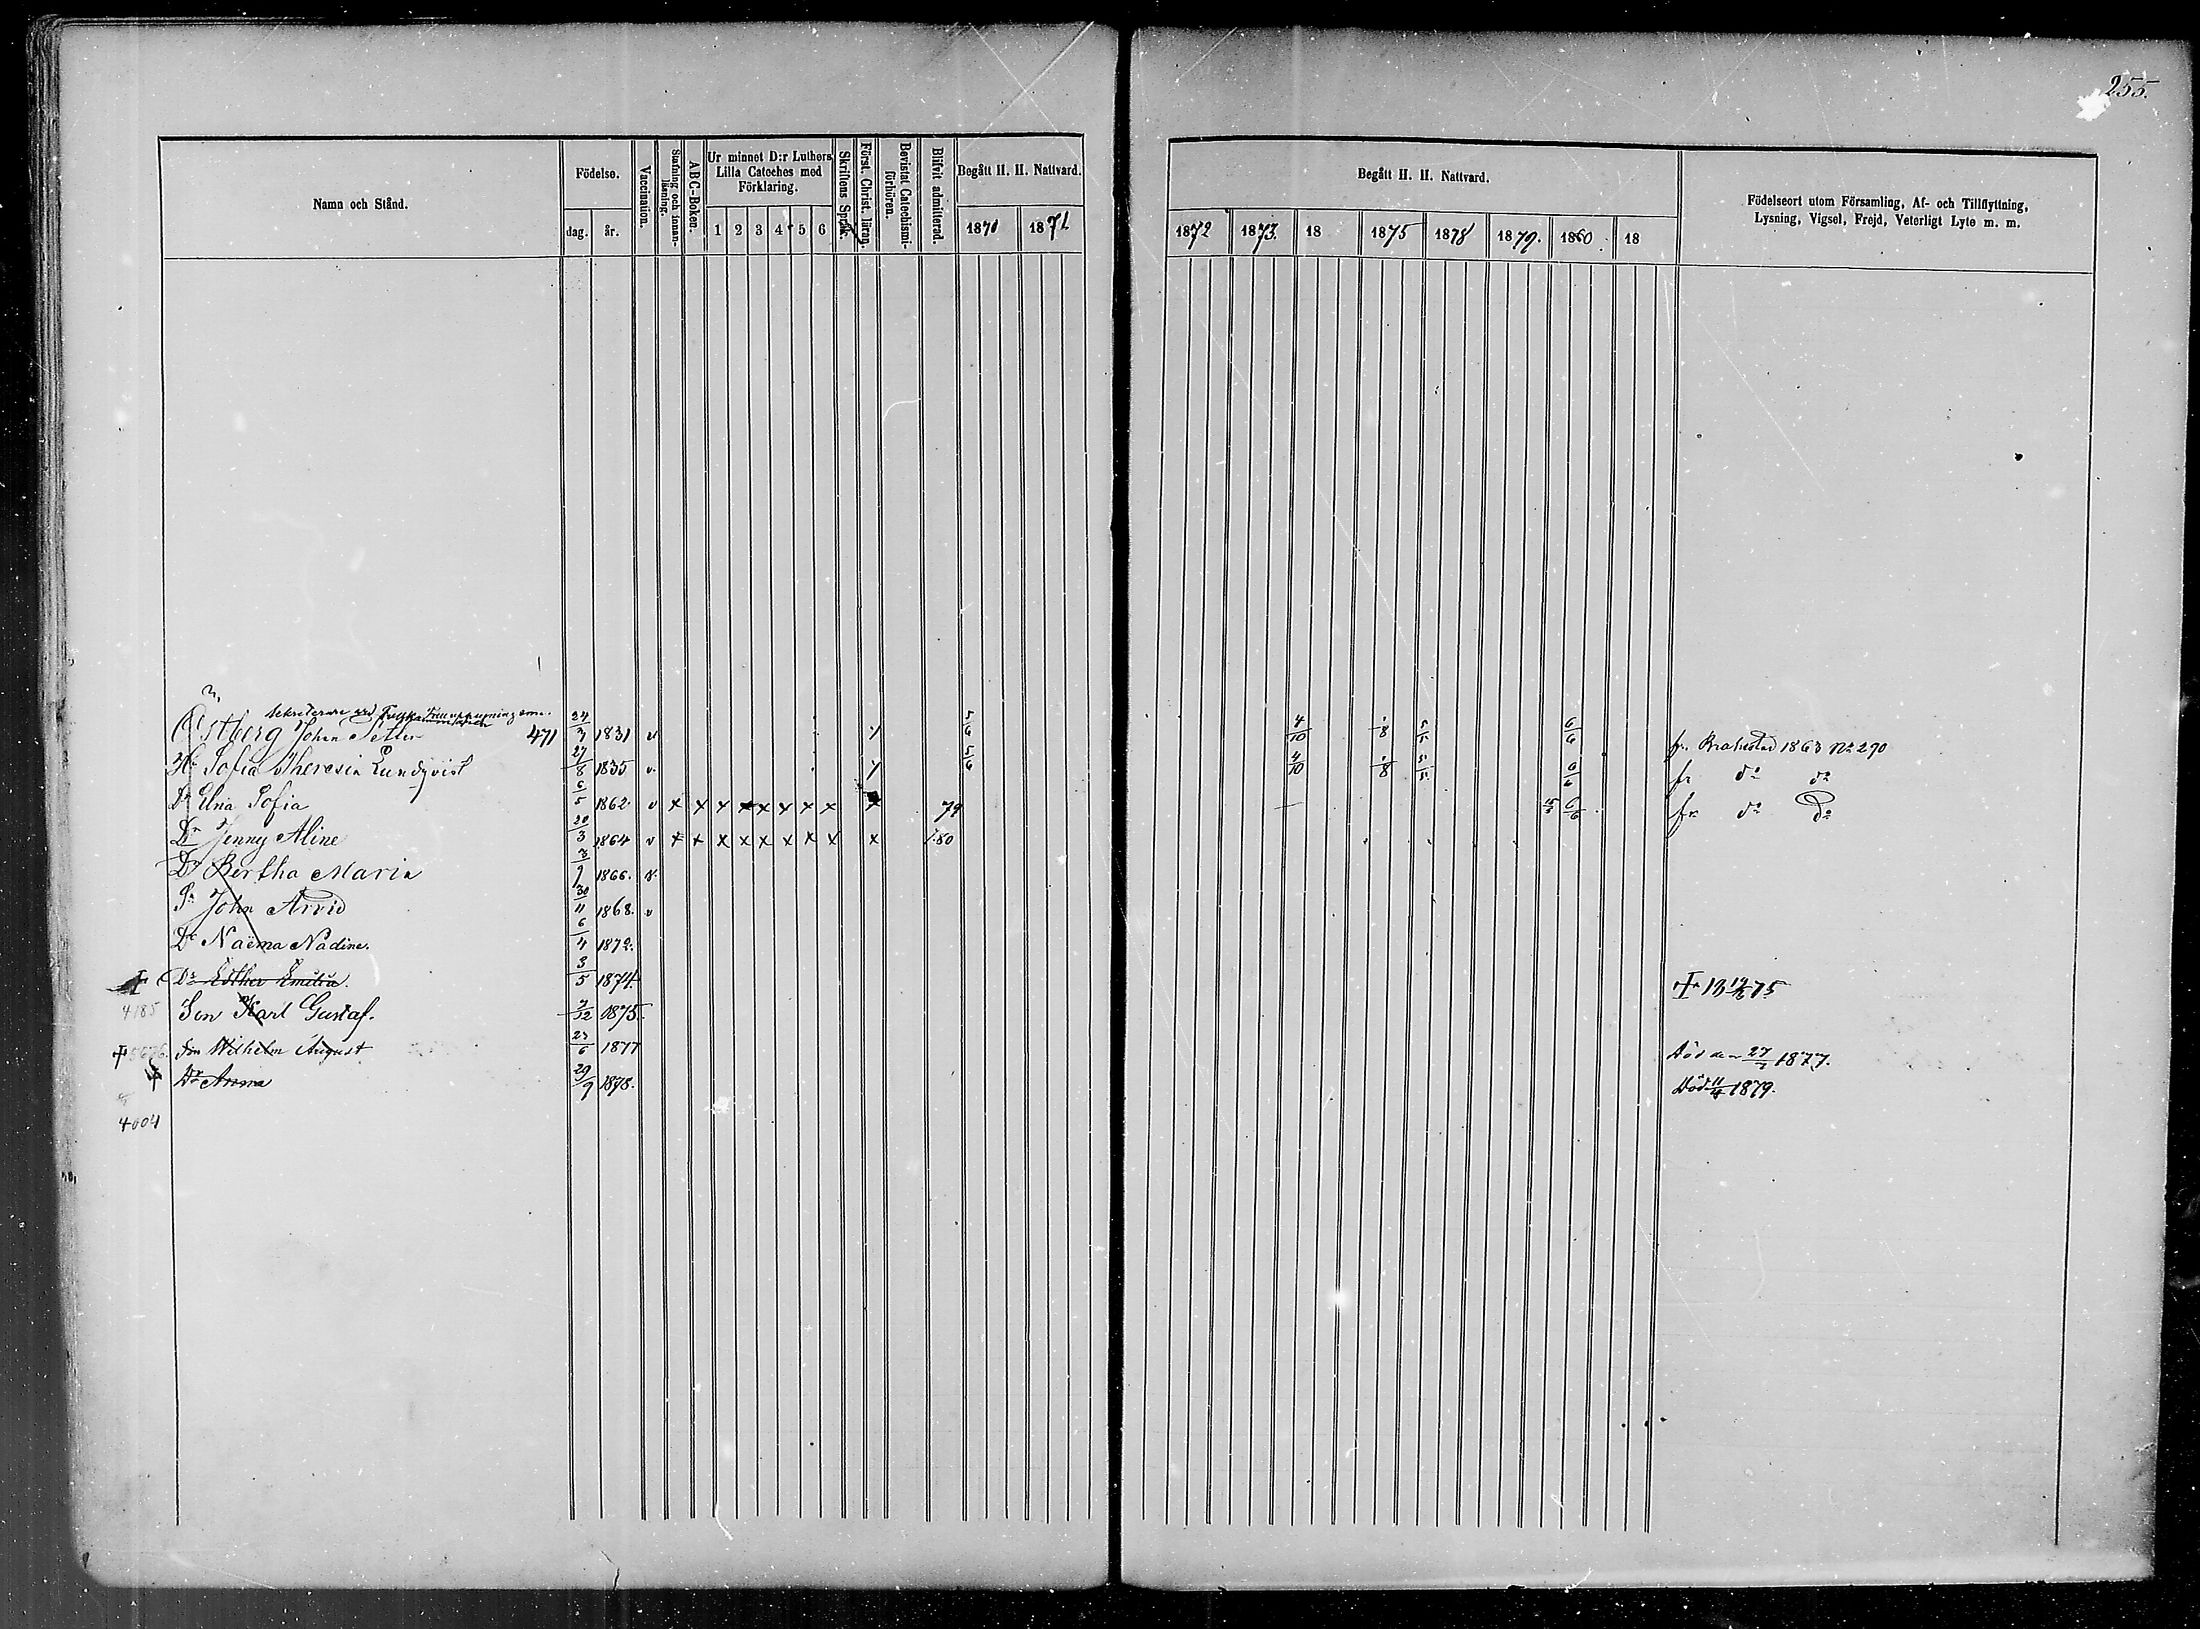 255.
Namn och Stånd.
Födelse.
dag. år.
Vaccination.
Stafning och innanläsning.
ABC-Boken.
Ur minnet D:r Luthers Lilla Cateches med Förklaring.
1 2 3 4 5 6
Skriftens Språk.
Först. Christ. läran.
Bevistat Catechismiförhören.
Blifvit admitterad.
Begått H. H. Nattvard.
1870 1871
Begått H. H. Nattvard.
1872 1873. 18 1875 1878 1879. 1880 18
Födelseort utom Församling, Af- och Tillflyttning,
Lysning, Vigsel, Frejd, Veterligt Lyte m. m.
Sekreterare vid
Östberg Johan Petter 471 24/3 1831 v 5/6 4/10 /8 5/5 6/6 fr. Brahestad 1863 No 290
Hu Sofia Theresia Lundqvist 27/8 1835 v. 5/6 4/10 /8 5/5 6/6 fr do do
Dr Elna Sofia 6/5 1862 v x x x x x x x x x 79 6/6 fr. do do
Dr Jenny Aline 20/3 1864 v x x x x x x x x x 80
Dr Bertha Maria 3/9 1866. v.
Sn John Arvid 30/11 1868. v
Dr Naëma Nadine. 6/4 1872.
Dr Esther Emilia. 3/5 1874. 75
4185 Son Karl Gustaf. 2/12 1875.
Son Wilhelm August 23/6 1877 Död den 27/7 1877.
Dr Anna 29/9 1878. Död 11/4 1879.
4004